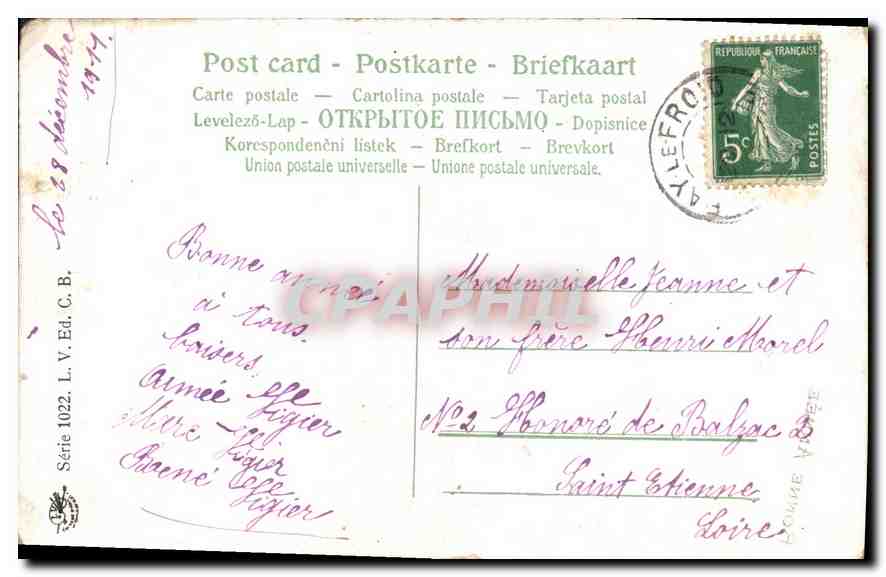 le 28 décembre
1911
Post card - Postkarte - Briefkaart
Carte postale — Cartolina postale — Tarjeta postal
Levelező-Lap - ОТКРЫТОЕ ПИСЬМО - Dopisnice
Korespondenční lístek — Brefkort — Brevkort
Union postale universelle — Unione postale universale.
FAY-LE-FROID
REPUBLIQUE FRANÇAISE
5c
POSTES
Série 1022. L. V. Ed. C. B.
Bonne année
à tous.
baisers
Aimée
Vigier
Marc
Vigier
Vigier
CPAPHIL
Mademoiselle Jeanne et
son frère Henri Morel
No 2 Honoré de Balzac 2
Saint Etienne
Loire
BONNE ANNÉE